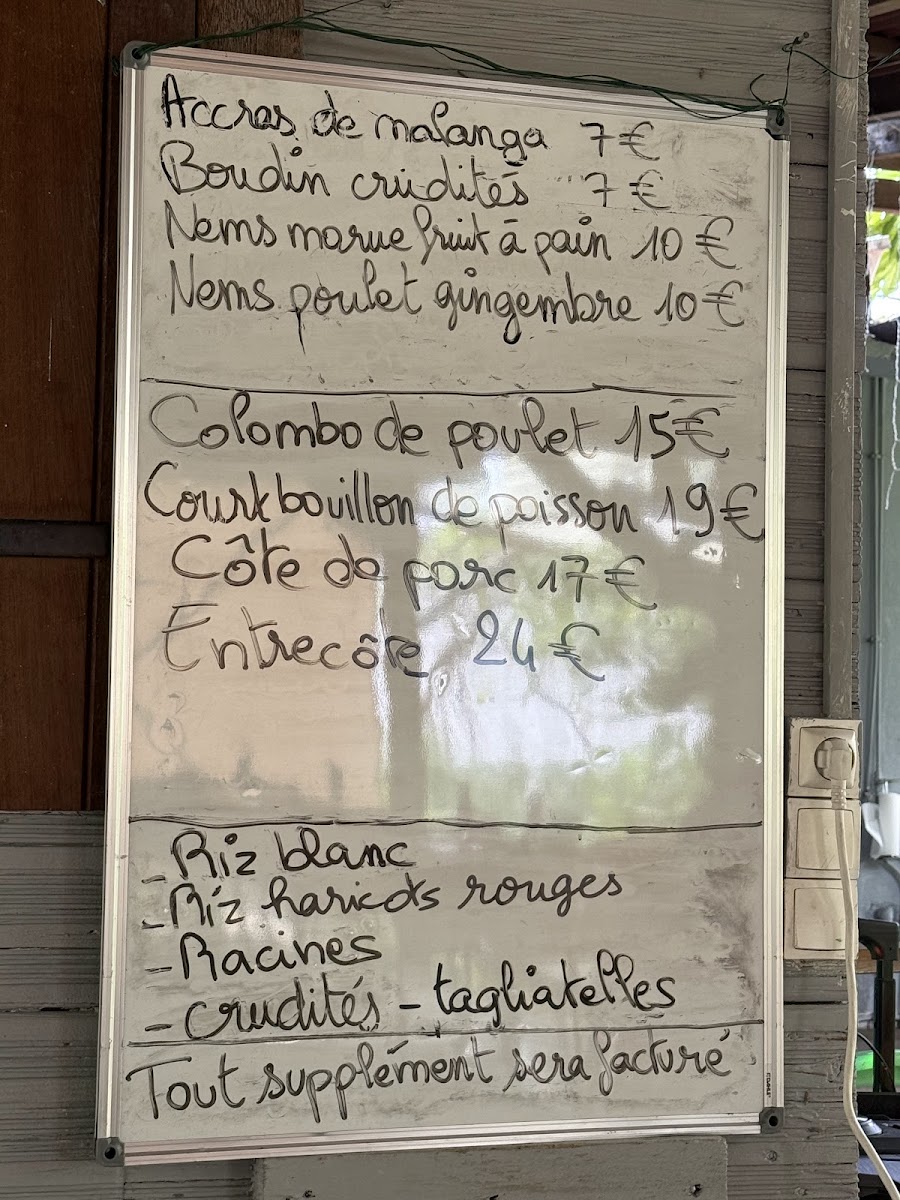 Accras de malanga 7€
Boudin crudités 7€
Nems morue fruit à pain 10€
Nems poulet gingembre 10€
Colombo de poulet 15€
Court bouillon de poisson 19€
Côte de porc 17€
Entrecôte 24€
- Riz blanc
- Riz haricots rouges
- Racines
- crudités - tagliatelles
Tout supplément sera facturé